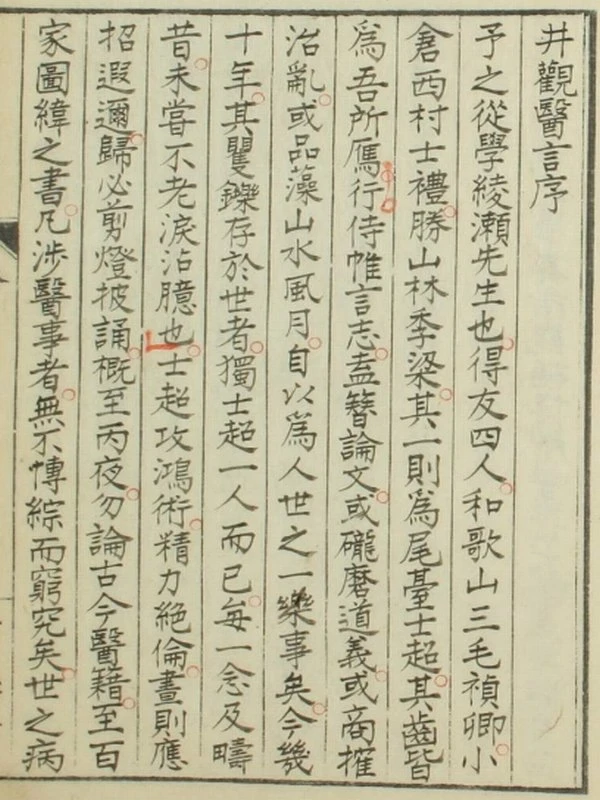 井觀醫言序
予之從學綾瀨先生也得友四人和歌山三毛禎卿小
倉西村士禮勝山林季梁其一則爲尾臺士超其齒皆
爲吾所鴈行侍帷言志盍簪論文或礲磨道義或商搉
治亂或品藻山水風月自以爲人世之一樂事矣今幾
十年其矍鑠存於世者獨士超一人而已每一念及疇
昔未嘗不老淚沾臆也士超攻鴻術精力絕倫晝則應
招遐邇歸必剪燈披誦概至丙夜勿論古今醫籍至百
家圖緯之書凡涉醫事者無不愽綜而窮究矣世之病